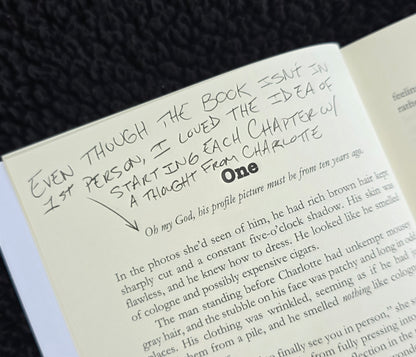 EVEN THOUGH THE BOOK ISN'T IN
1ST PERSON, I LOVED THE IDEA OF
STARTING EACH CHAPTER W/
A THOUGHT FROM CHARLOTTE
One
Oh my God, his profile picture must be from ten years ago.
In the photos she'd seen of him, he had rich brown hair kept
sharply cut and a constant five-o'clock shadow. His skin was
flawless, and he knew how to dress. He looked like he smelled
of cologne and possibly expensive cigars.
The man standing before Charlotte had unkempt mousy
gray hair, and the stubble on his face was patchy and long in
places. His clothing was wrinkled, seeming as if he had
them from a pile, and he smelled nothing like
finally see you in person," she
from fully pressing into
in the